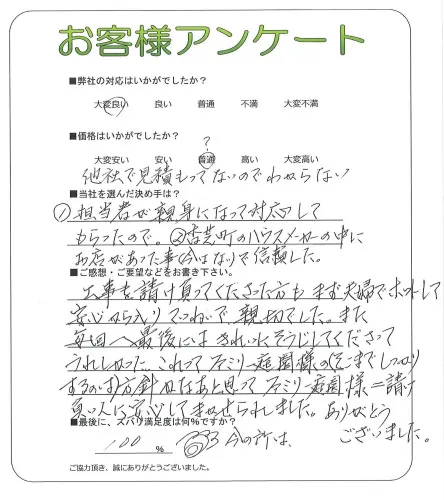 お客様アンケート
■弊社の対応はいかがでしたか？
大変良い 良い 普通 不満 大変不満
■価格はいかがでしたか？
?
大変安い 安い 普通 高い 大変高い
他社で見積もってないのでわからない
■当社を選んだ決め手は？
①担当者が親身になって対応して
もらったので。②古芝町のハウスメーカーの中に
お店があった事(今はなし)で信頼した。
■ご感想・ご要望などをお書き下さい。
工事を請け負ってくださった方も まず夫婦で
安心から入り 親切でした。また
毎回、最後には きれいにそうじしてくださって
うれしかった これってファミリー庭園様の(そこまでしっかり
するのが)方針かなあと思って ファミリー庭園様＝請け
負い人に安心してまかせられました。ありがとう
ございました。
■最後に、ズバリ満足度は何%ですか？
100 % 今の所は、
ご協力頂き、誠にありがとうございました。